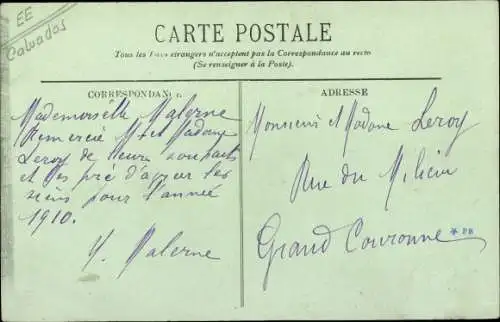 EE
Calvados
CARTE POSTALE
Tous les Pays étrangers n'acceptent pas la Correspondance au recto
(Se renseigner à la Poste).
CORRESPONDANCE
ADRESSE
Mademoiselle Malerne
Remercie Mr et Madame
Leroy de leurs souhaits
et les prie d'agréer les
siens pour l'année
1910.
Y. Malerne
Monsieur et Madame Leroy
Rue du Milieu
Grand Couronne